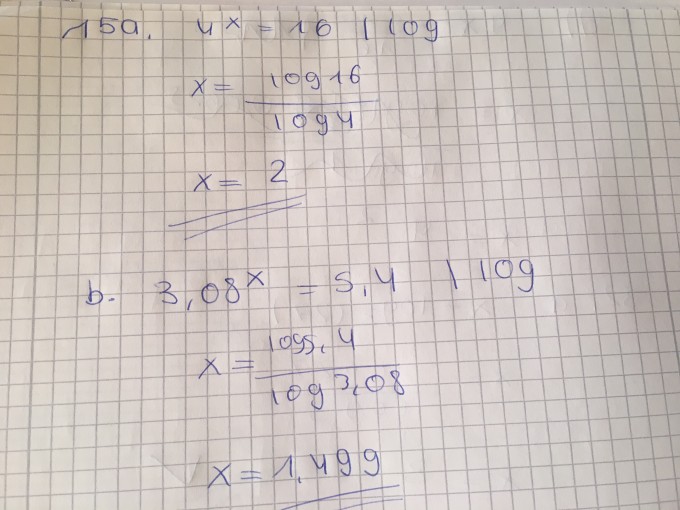 15a. 4^x = 16 | log
x = log 16 / log 4
x = 2
b. 3,08^x = 5,4 | log
x = log 5,4 / log 3,08
x = 1,499